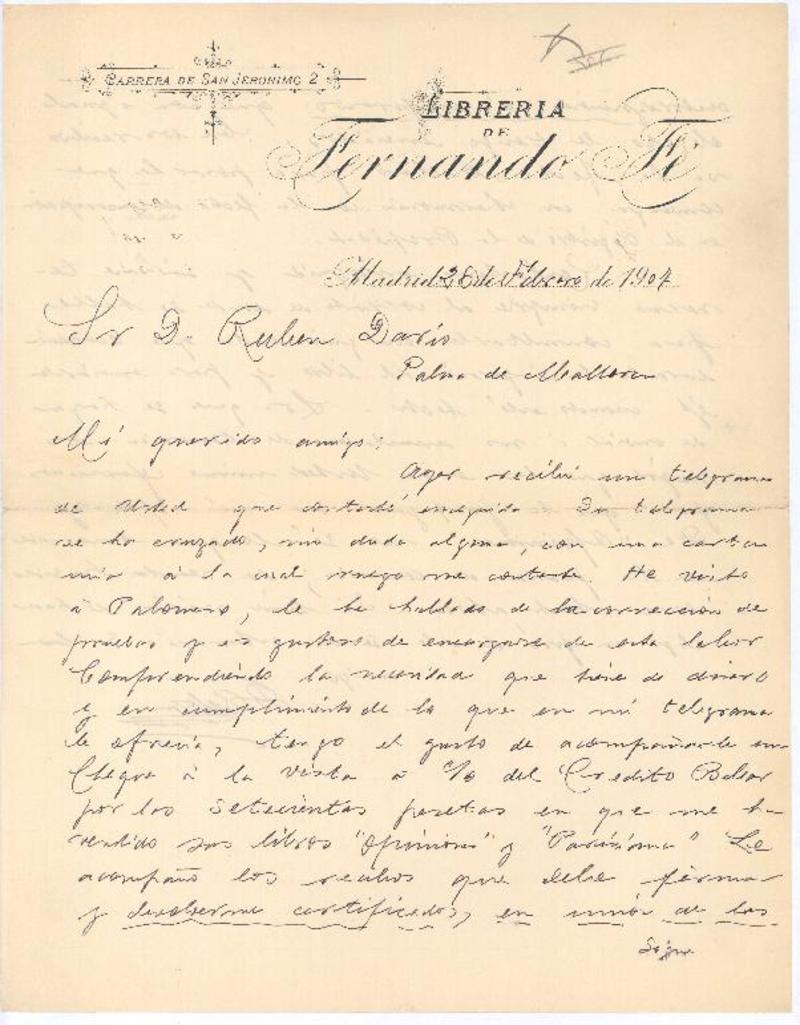 CARRERA DE SAN JERONIMO 2
LIBRERIA
DE
Fernando Fé
Madrid 26 de Febrero de 1907
Sr D. Ruben Dario
Palma de Mallorca
Mi querido amigo:
Ayer recibí un telegrama
de Usted que contesté enseguida. Su telegrama
se ha cruzado, sin duda alguna, con una carta
mia á la cual ruego me conteste. He visto
á Palomero, le he hablado de la corrección de
pruebas y es gustoso de encargarse de esta labor
Comprendiendo la necesidad que tiene de dinero
y en cumplimiento de lo que en mi telegrama
le ofrecia, tengo el gusto de acompañarle un
Cheque á la vista á c/o del Credito Balear
por las setecientas pesetas en que me ha
vendido sus libros "Opiniones" y "Parisiana" Le
acompaño los recibos que debe firmar
y devolverme certificados, en unión de los
Sigue